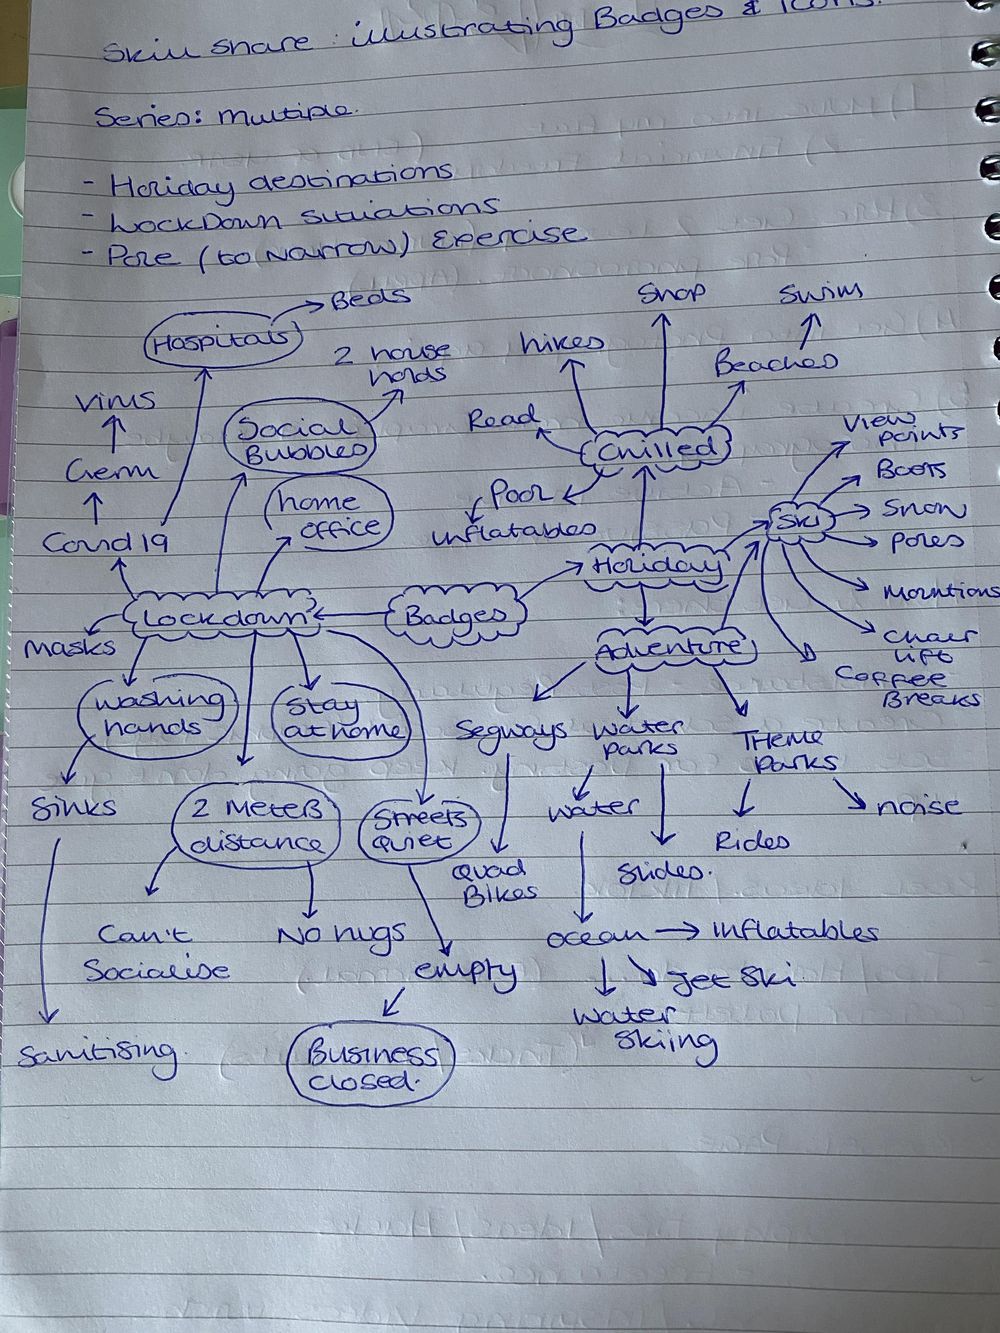 Skill share: illustrating Badges & Icons.
Series: multiple.
- Holiday destinations
- LockDown situations
- Pole (to Narrow) Exercise
Beds
Hospitals
2 house
holds
Virus
Germ
Covid 19
Social
Bubbles
home
office
Lockdown
Badges
Masks
washing
hands
Stay
at home
Sinks
2 Meters
distance
Streets
Quiet
Can't
Socialise
No hugs
empty
Sanitising.
Business
closed.
Shop
Swim
hikes
Beaches
Read
Chilled
Pool
inflatables
Holiday
Ski
View
points
Boots
Snow
Poles
Mountions
Chair
lift
Coffee
Breaks
Adventure
Segways
Water
parks
THeme
Parks
Quad
Bikes
Water
Slides.
Rides
noise
ocean → inflatables
Jet Ski
Water
Skiing